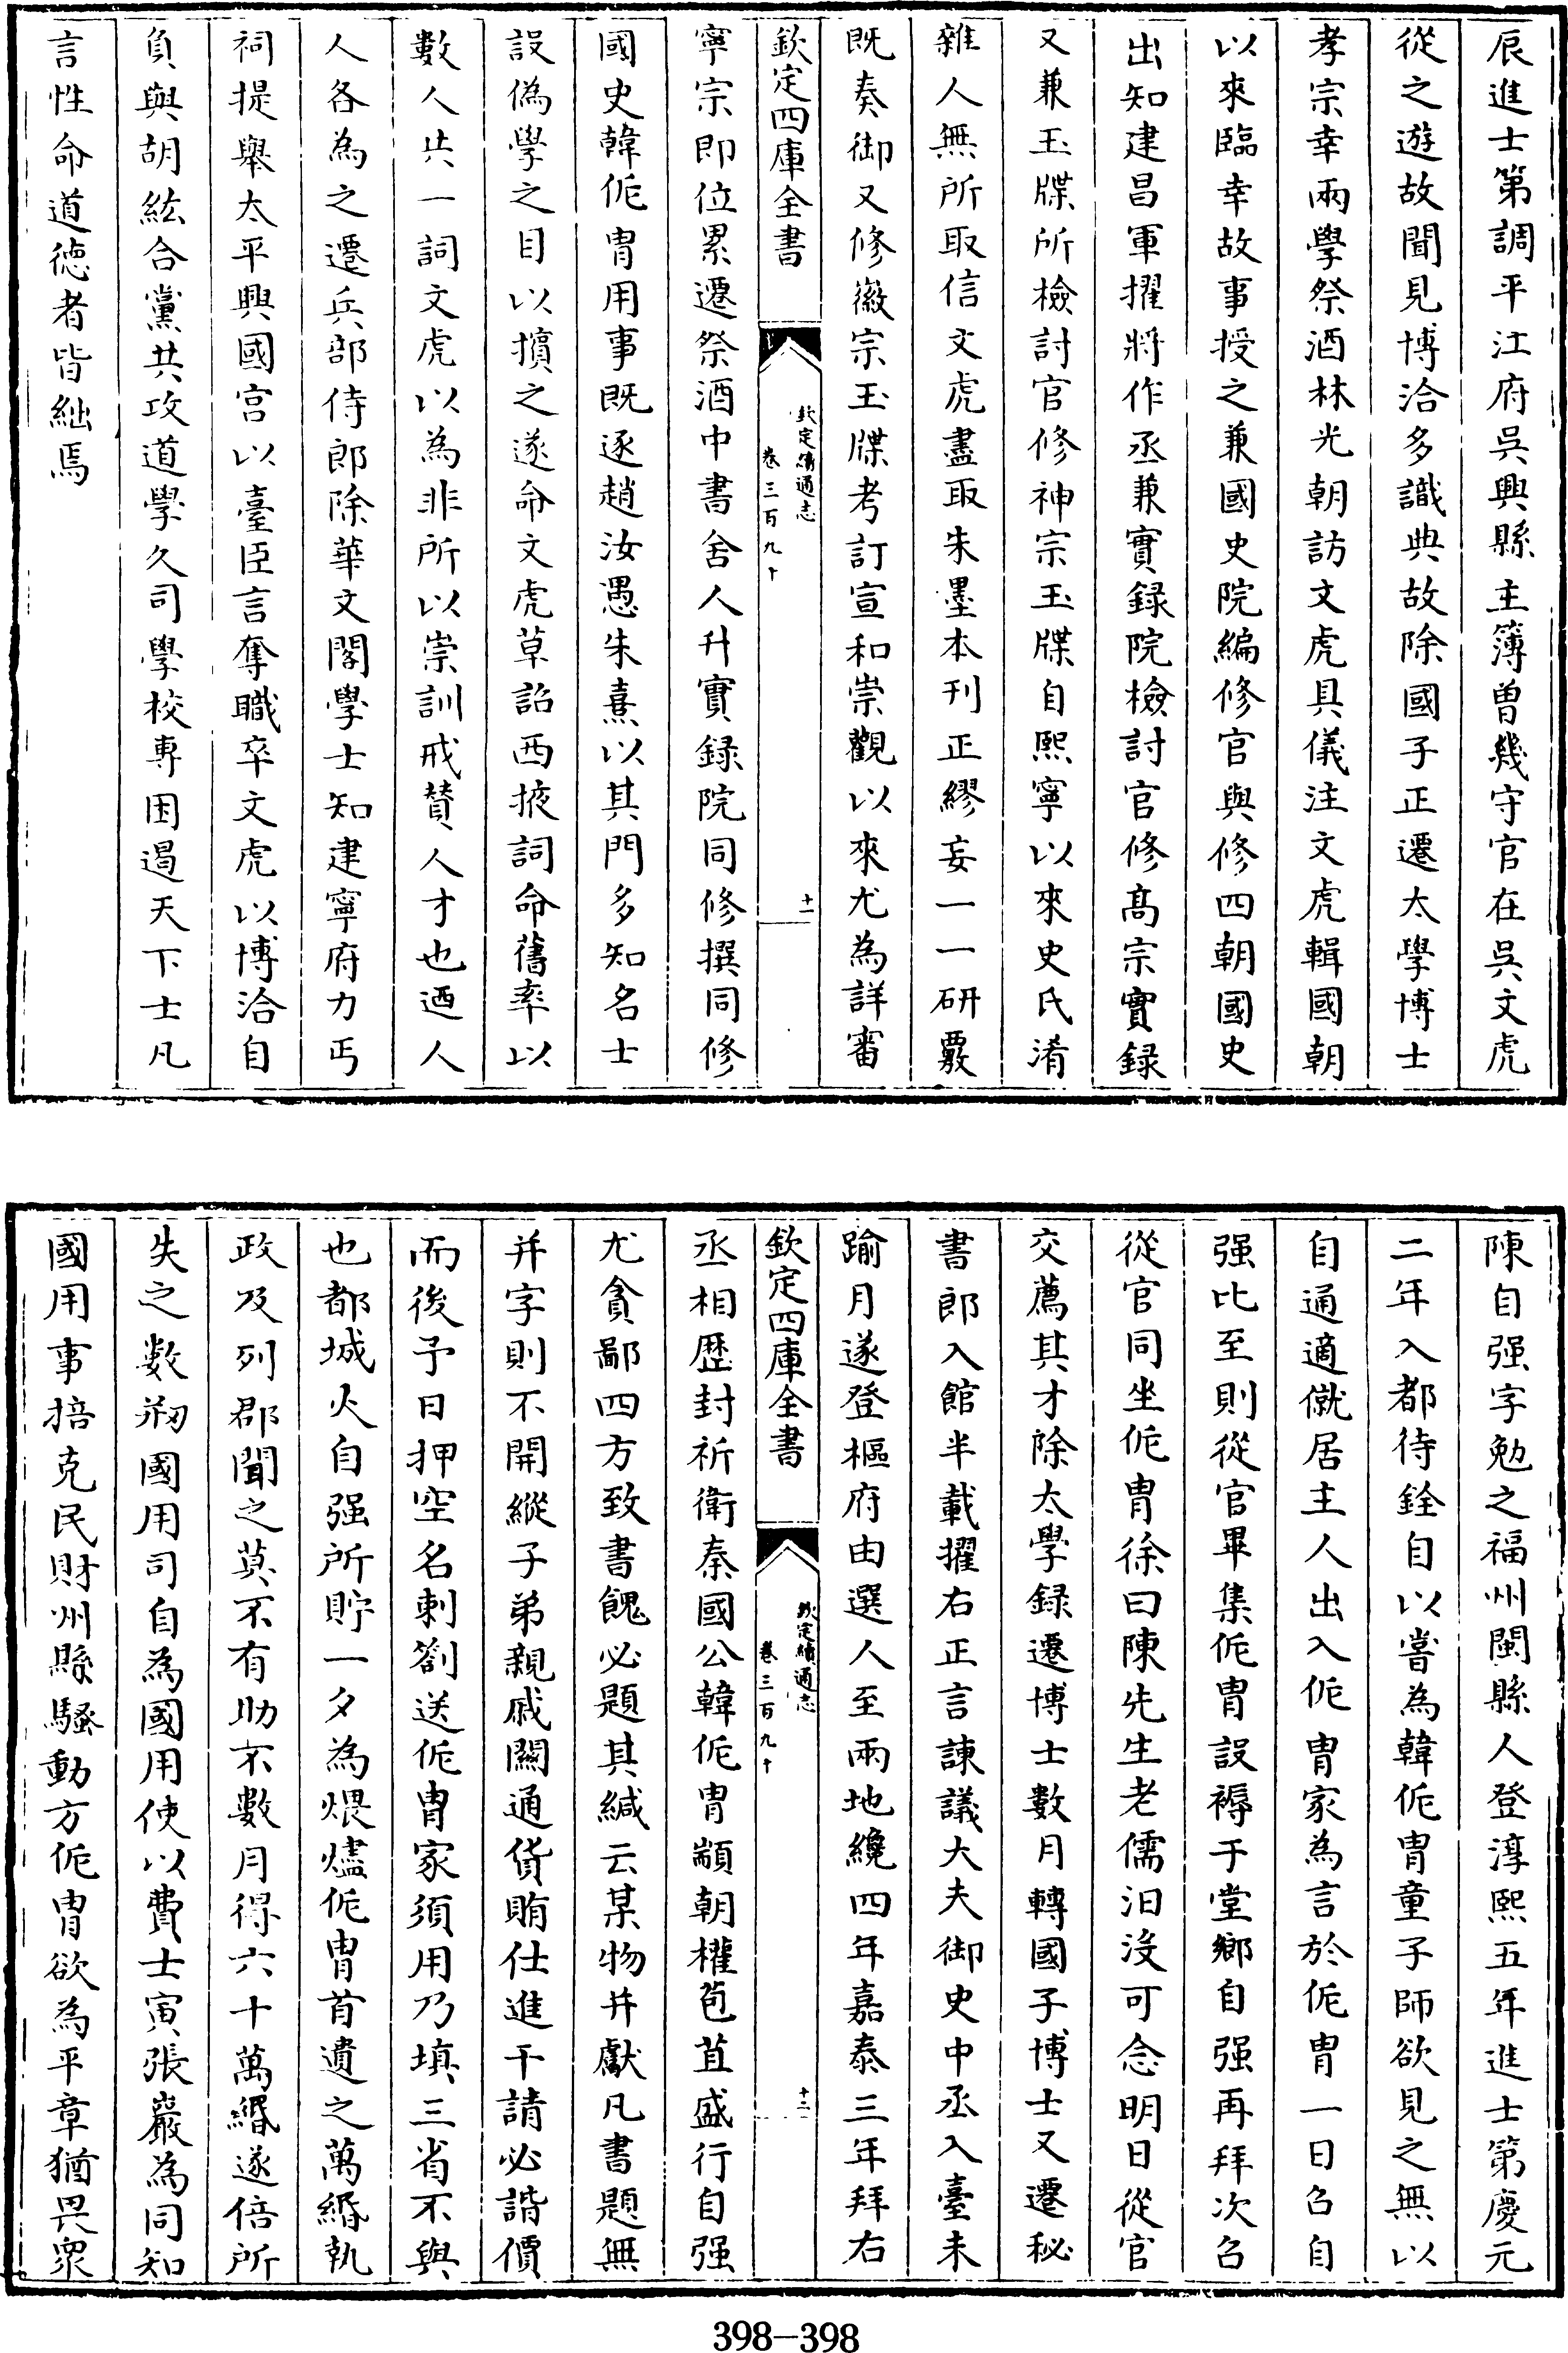 辰進士第調平江府吳興縣主簿曾幾守官在吳文虎
從之遊故聞見博洽多識典故除國子正遷太學博士
孝宗幸兩學祭酒林光朝訪文虎具儀注文虎輯國朝
以來臨幸故事授之兼國史院編修官與修四朝國史
出知建昌軍擢將作丞兼實録院檢討官修髙宗實録
又兼玉牒所檢討官修神宗玉牒自熙寧以來史氏淆
雜人無所取信文虎盡取朱墨本刊正繆妄一一研覈
既奏御又修徽宗玉牒考訂宣和崇觀以來尤為詳審
欽定四庫全書
欽定續通志
卷三百九十
十一
寧宗即位累遷祭酒中書舍人升實録院同修撰同修
國史韓侂胄用事既逐趙汝愚朱熹以其門多知名士
設偽學之目以擯之遂命文虎草詔西掖詞命舊率以
數人共一詞文虎以為非所以崇訓戒賛人才也迺人
人各為之遷兵部侍郎除華文閣學士知建寧府力丐
祠提舉太平興國宫以臺臣言奪職卒文虎以博洽自
負與胡紘合黨共攻道學久司學校專困遏天下士凡
言性命道德者皆絀焉
陳自强字勉之福州閩縣人登淳熙五年進士第慶元
二年入都待銓自以嘗為韓侂胄童子師欲見之無以
自通適僦居主人出入侂胄家為言於侂胄一日召自
强比至則從官畢集侂胄設褥于堂鄉自强再拜次召
從官同坐侂胄徐曰陳先生老儒汩没可念明日從官
交薦其才除太學録遷博士數月轉國子博士又遷秘
書郎入館半載擢右正言諫議大夫御史中丞入臺未
踰月遂登樞府由選人至兩地纔四年嘉泰三年拜右
欽定四庫全書
欽定續通志
卷三百九十
十二
丞相歴封祈衛秦國公韓侂胄顓朝權苞苴盛行自强
尤貪鄙四方致書餽必題其緘云某物并獻凡書題無
并字則不開縱子弟親戚關通貨賄仕進干請必諧價
而後予日押空名刺劄送侂胄家須用乃填三省不與
也都城火自强所貯一夕為煨燼侂胄首遺之萬緡執
政及列郡聞之莫不有助不數月得六十萬緡遂倍所
失之數剏國用司自為國用使以費士寅張巖為同知
國用事掊克民財州縣騷動方侂胄欲為平章猶畏衆
398-398